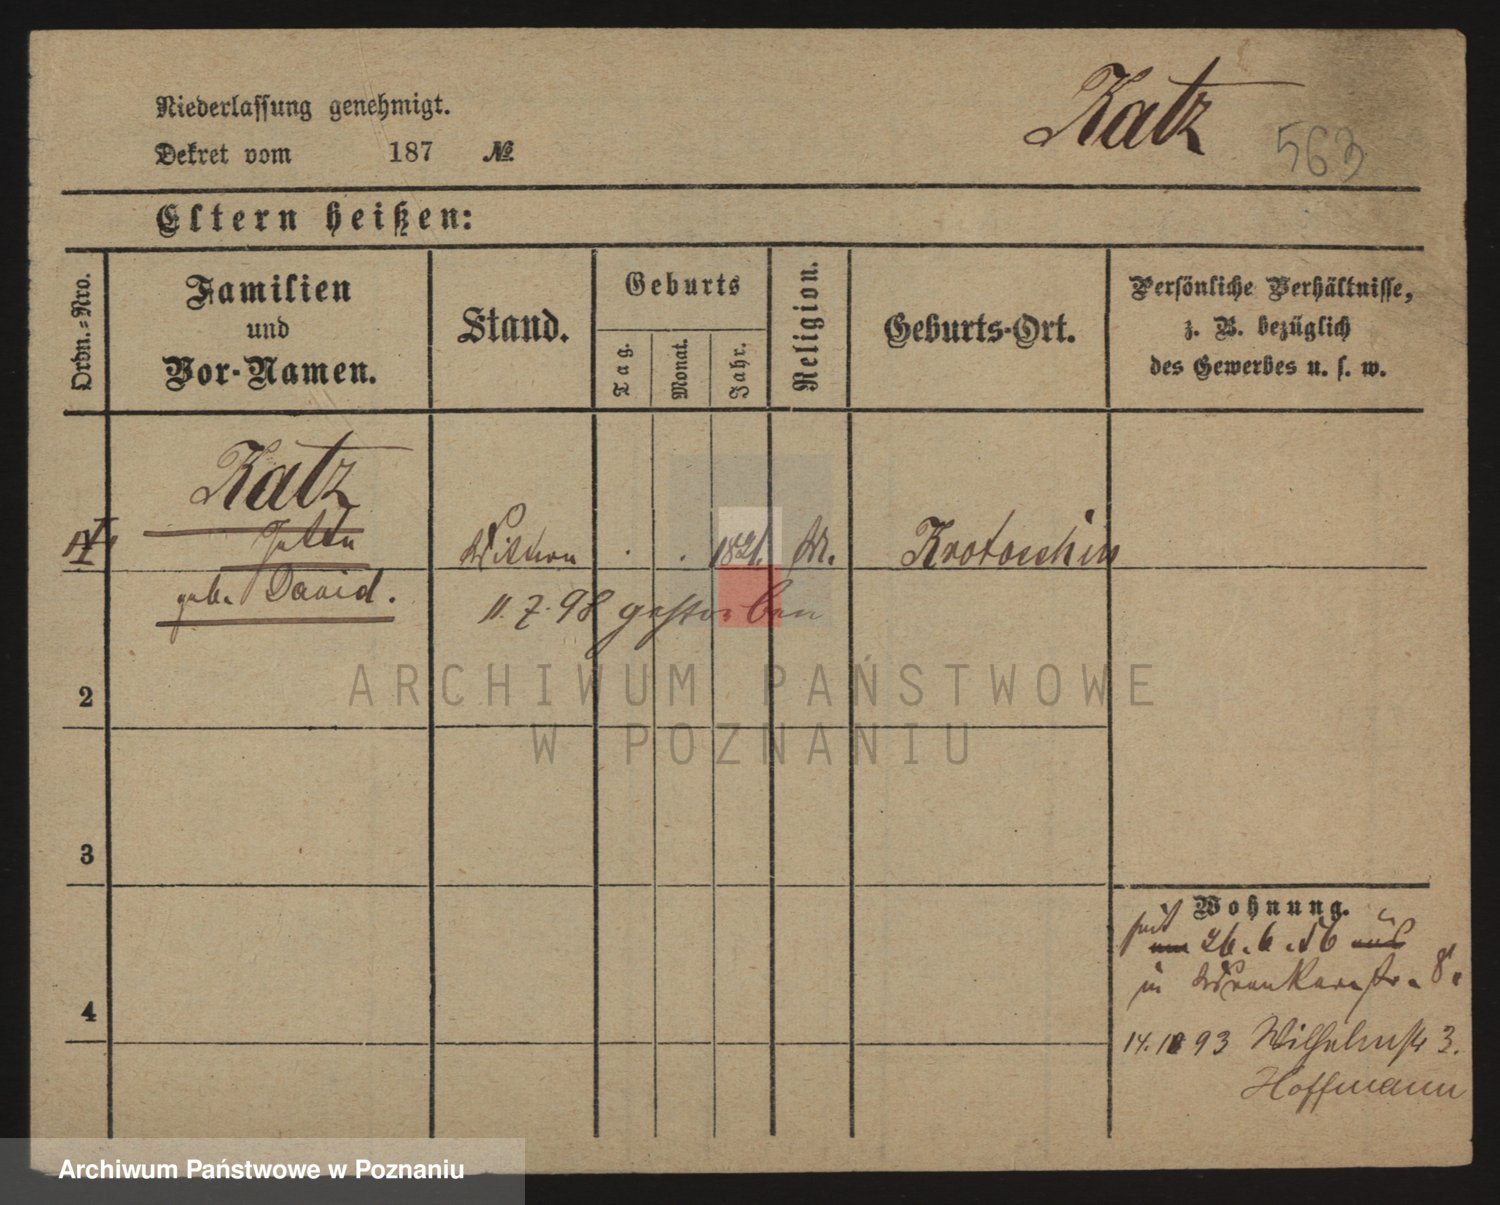 Niederlassung genehmigt.
Katz
563
Dekret vom 187 №
Eltern heißen:
Ordn.-Nro.
Familien und Vor-Namen.
Stand.
Geburts
Tag.
Monat.
Jahr.
Religion.
Geburts-Ort.
Persönliche Verhältnisse, z. B. bezüglich des Gewerbes u. s. w.
Katz
1821. M. Krotoschin
geb. David.
11. 7. 98 gestorben
ARCHIWUM PAŃSTWOWE
W POZNANIU
2
3
4
Wohnung.
seit 26. 6. 56
in Wronkerstr. 8.
93 Wilhelmstr 3.
Hoffmann
Archiwum Państwowe w Poznaniu